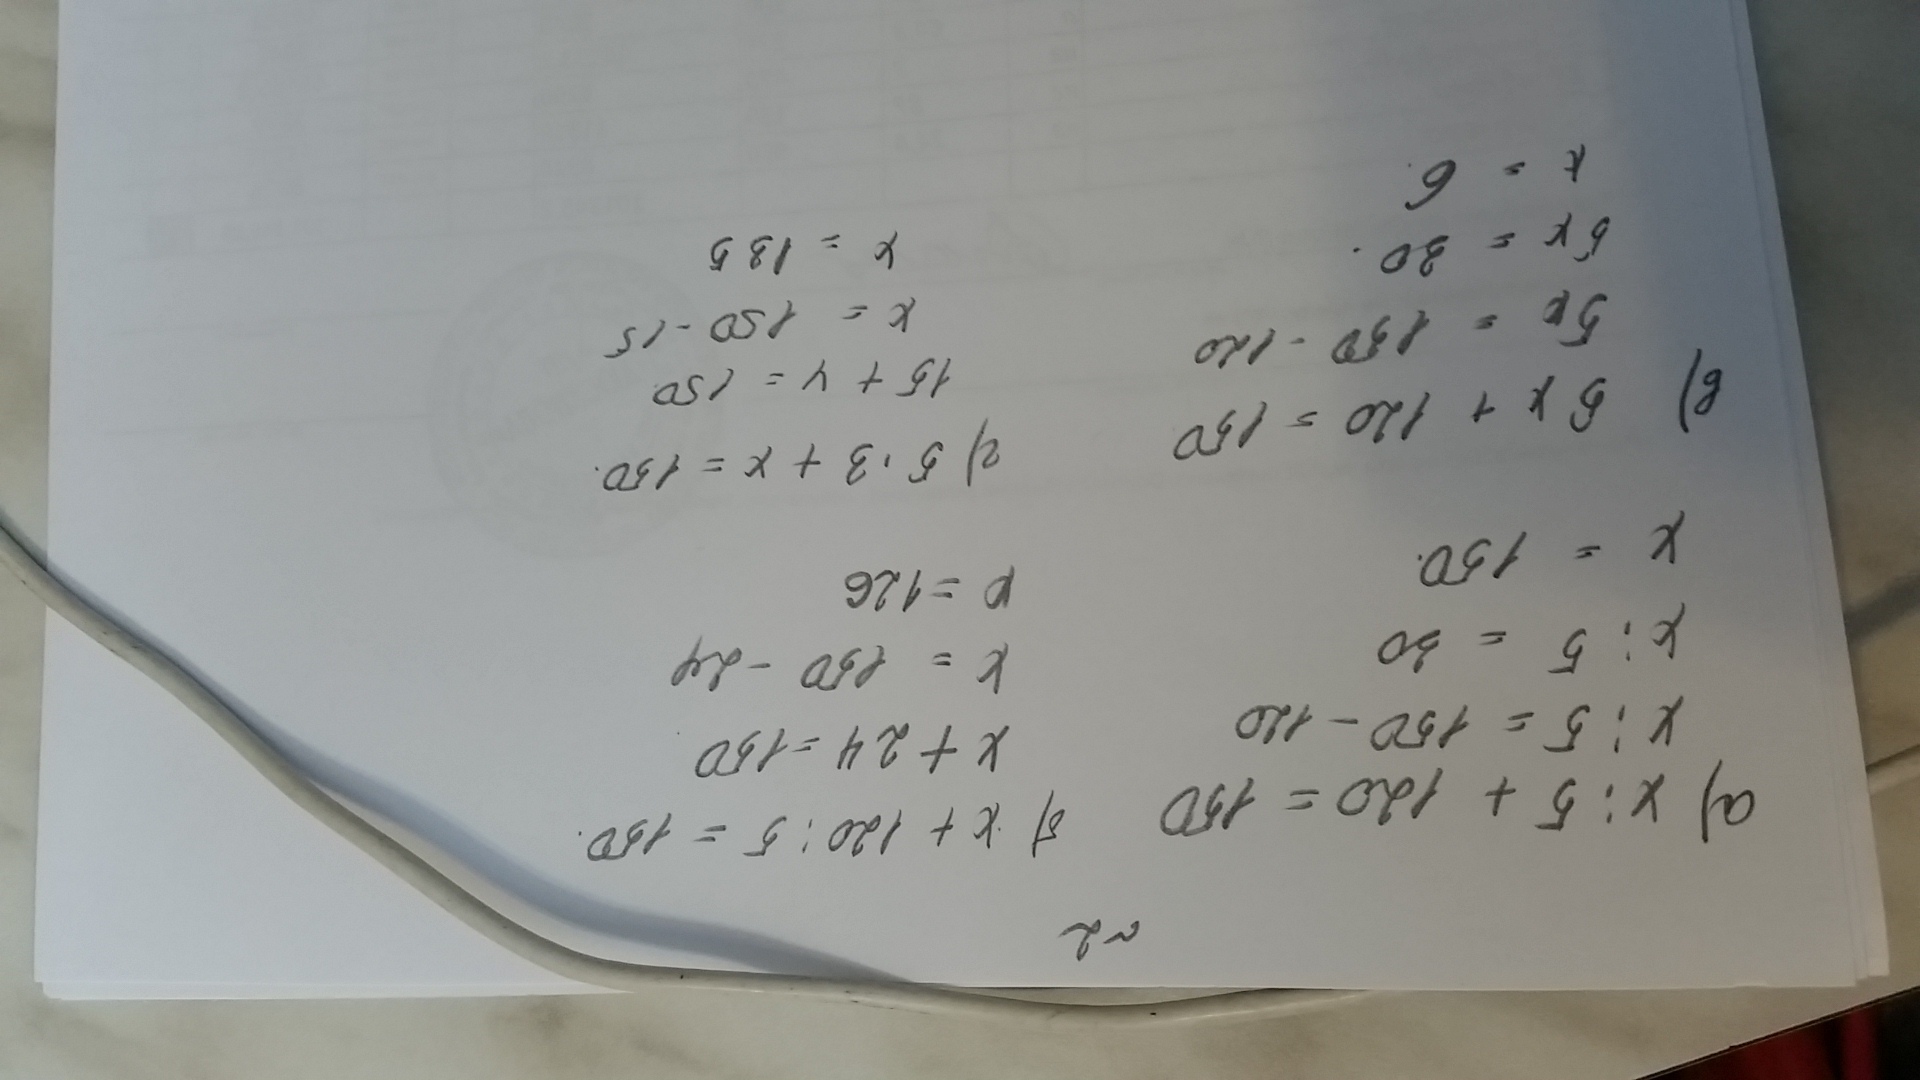 ~2
а) x : 5 + 120 = 150
x : 5 = 150 - 120
x : 5 = 30
x = 150.
б) x + 120 : 5 = 150.
x + 24 = 150
x = 150 - 24
x = 126
в) 5x + 120 = 150
5x = 150 - 120
5x = 30.
x = 6.
г) 5 · 3 + x = 150.
15 + x = 150
x = 150 - 15
x = 135